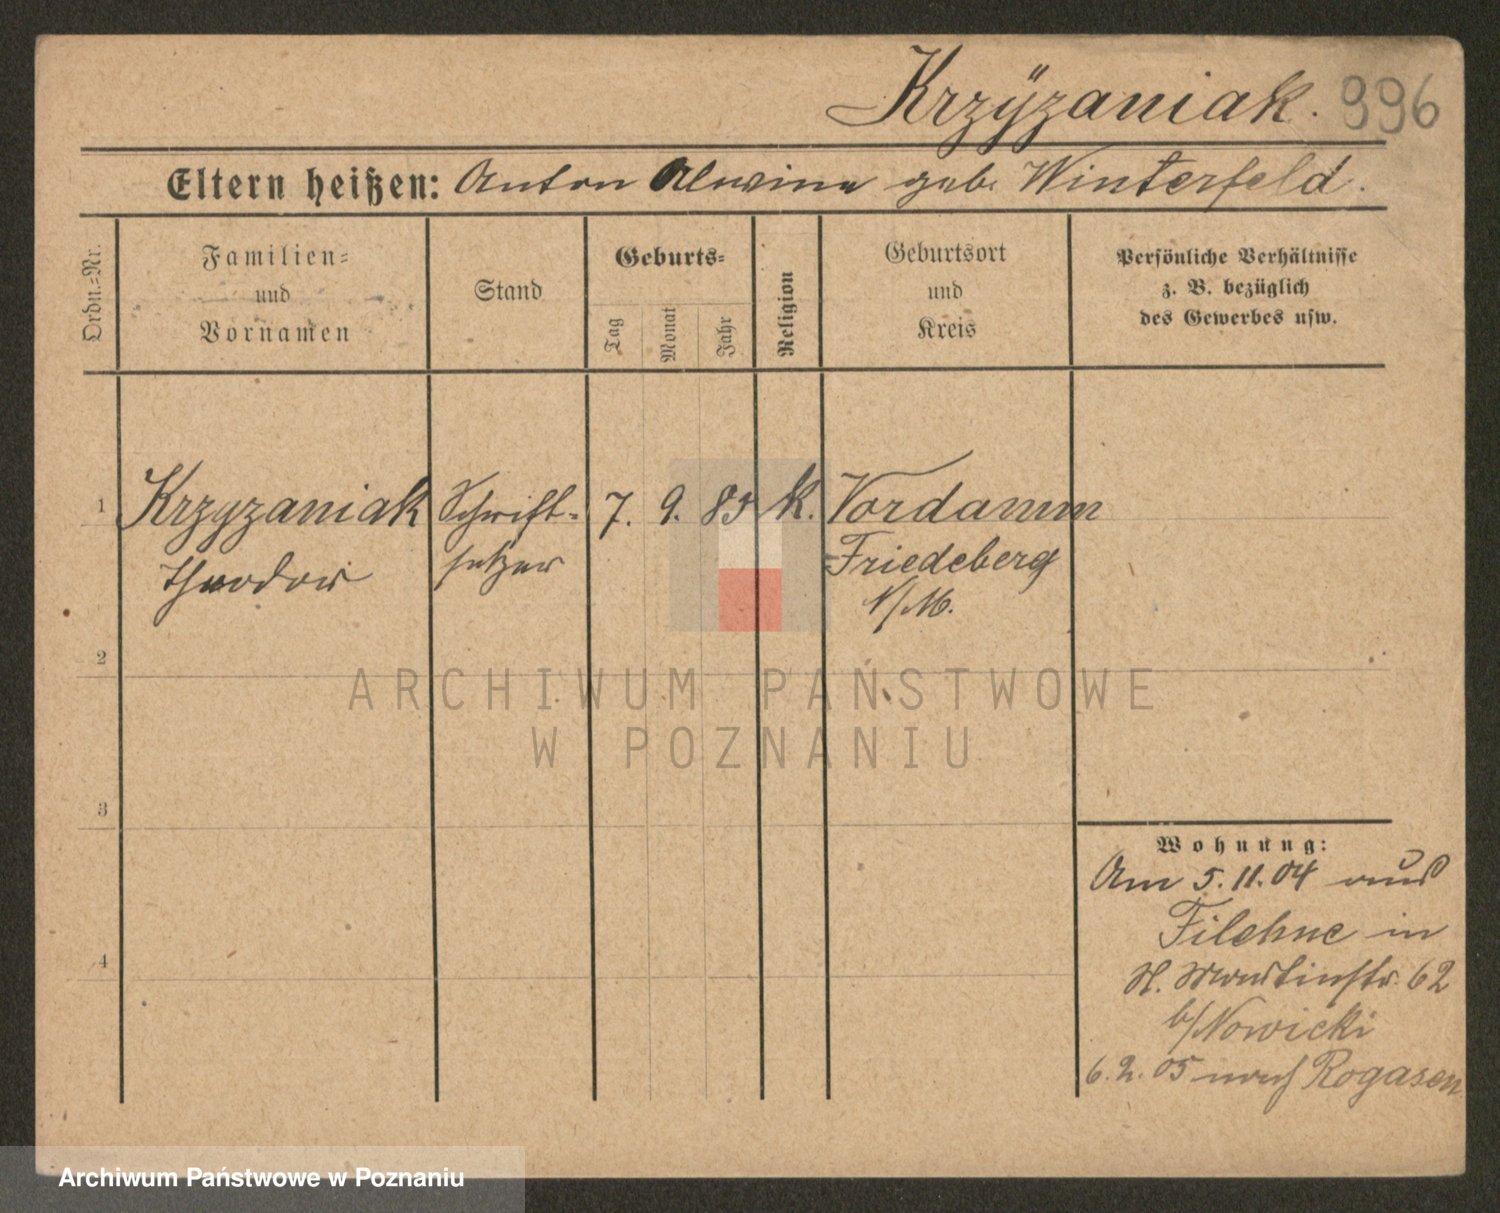 Krzÿzaniak. 996
Eltern heißen: Anton Alwine geb. Winterfeld.
Ordn.-Nr.
Familien-
und
Vornamen
Stand
Geburts-
Tag
Monat
Jahr
Religion
Geburtsort
und
Kreis
Persönliche Verhältnisse
z. B. bezüglich
des Gewerbes usw.
1 Krzyzaniak Schrift- 7. 9. 85 k. Vordamm
Theodor setzer Friedeberg
N/M.
2
ARCHIWUM PAŃSTWOWE
W POZNANIU
3
Wohnung:
Am 5.11.04 aus
Filehne in
St. Martinstr. 62
b/Nowicki
6.2.05 nach Rogasen
4
Archiwum Państwowe w Poznaniu